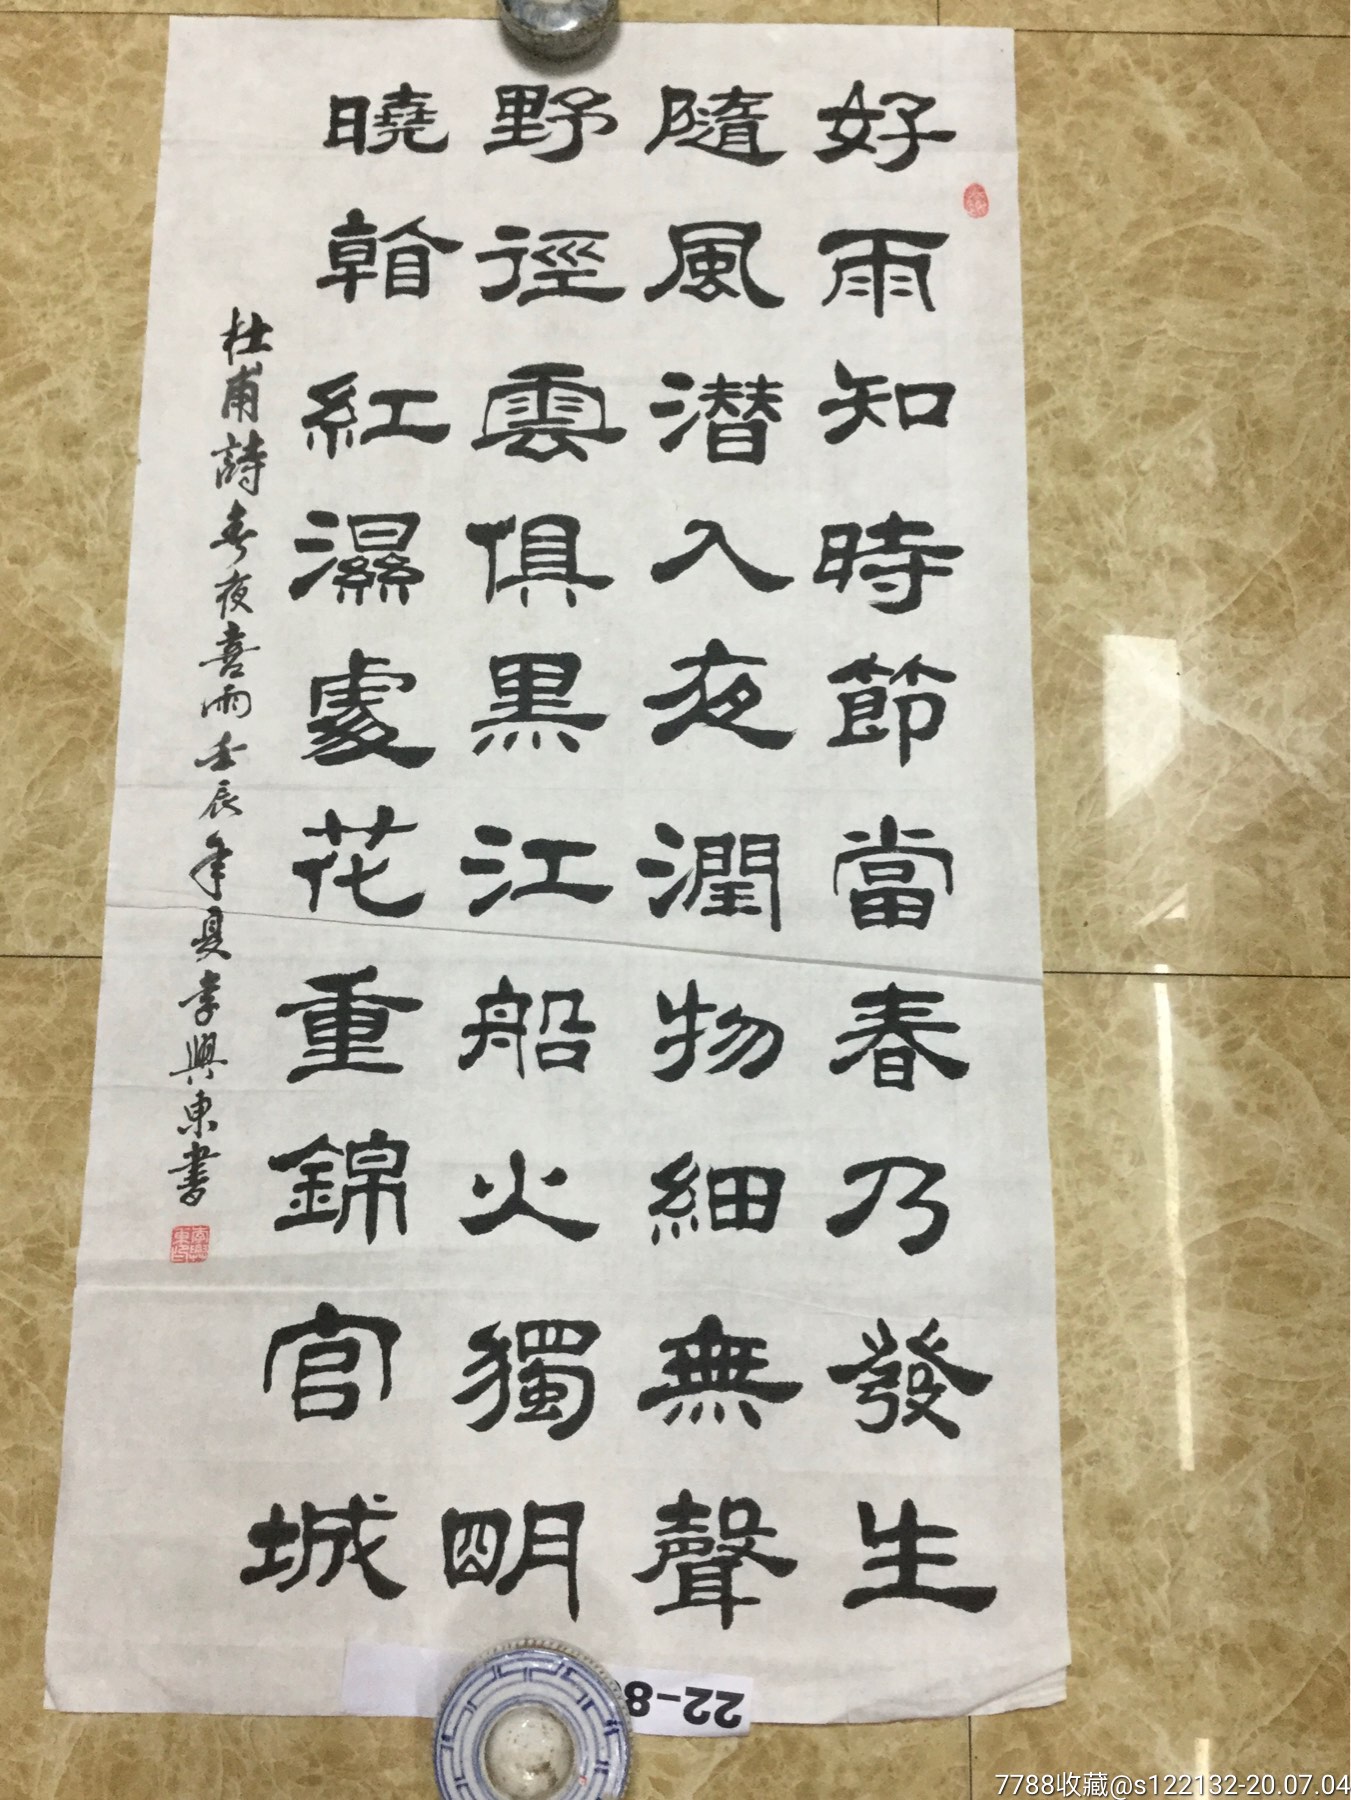 好雨知時節當春乃發生
隨風潜入夜潤物細無聲
野徑雲俱黑江船火獨明
曉看紅濕處花重錦官城
杜甫詩春夜喜雨壬辰年夏李興東書
李興東印
22-8
7788收藏@s122132-20.07.04